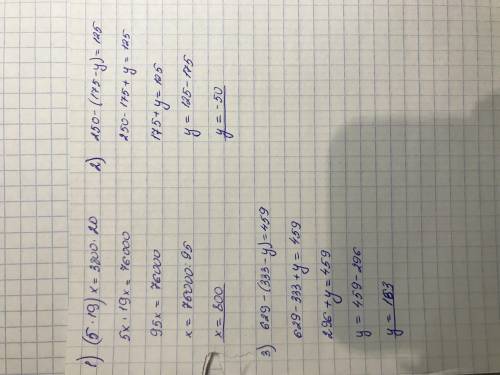 1) (5·19)x = 3800·20
5x·19x = 76000
95x = 76000
x = 76000:95
x = 800
2) 250-(175-y)=125
250-175+y=125
175+y=125
y=125-175
y=-50
3) 629-(333-y)=459
629-333+y=459
296+y=459
y=459-296
y=163